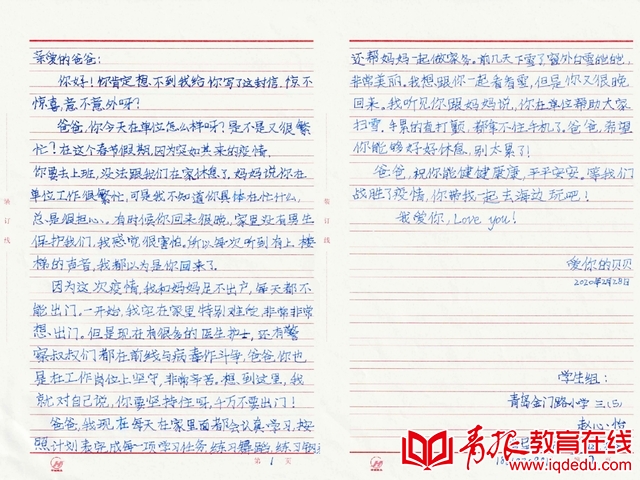 亲爱的爸爸:
你好!你肯定想不到我给你写了这封信,惊不
惊喜,意不意外呀?
爸爸,你今天在单位怎么样呀?是不是又很繁
忙?在这个春节假期,因为突如其来的疫情,
你要去上班,没法跟我们在家休息了。妈妈说你在
单位工作很繁忙,可是我不知道你具体在忙什么,
总是很担心。有时候你回来很晚,家里没有男生
保护我们,我感觉很害怕。所以每次听到有上楼
梯的声音,我都以为是你回来了。
因为这次疫情,我和妈妈足不出户,每天都不
能出门。一开始,我宅在家里特别难受,非常非常
想出门。但是现在有很多的医生护士,还有警
察叔叔们都在前线与病毒作斗争,爸爸,你也
是在工作岗位上坚守,非常辛苦。想到这里,我
就对自己说,你要坚持住呀,千万不要出门!
爸爸,我现在每天在家里面都会认真学习,按
照计划表完成每一项学习任务,练习舞蹈,练习
第1页
还帮妈妈一起做家务。前几天下雪了窗外白雪皑皑,
非常美丽。我想跟你一起看看雪,但是你又很晚
回来。我听见你跟妈妈说,你在单位帮助大家
扫雪,手累的直打颤,都拿不住手机了。爸爸,希望
你能够好好休息,别太累了!
爸爸,祝你能健健康康,平平安安。等我们
战胜了疫情,你带我一起去海边玩吧!
我爱你,Love you!
爱你的贝贝
2020年2月28日
学生组:
青岛金门路小学 三(5)
赵心怡
青报教育在线
www.iqdedu.com
装订线
装订线